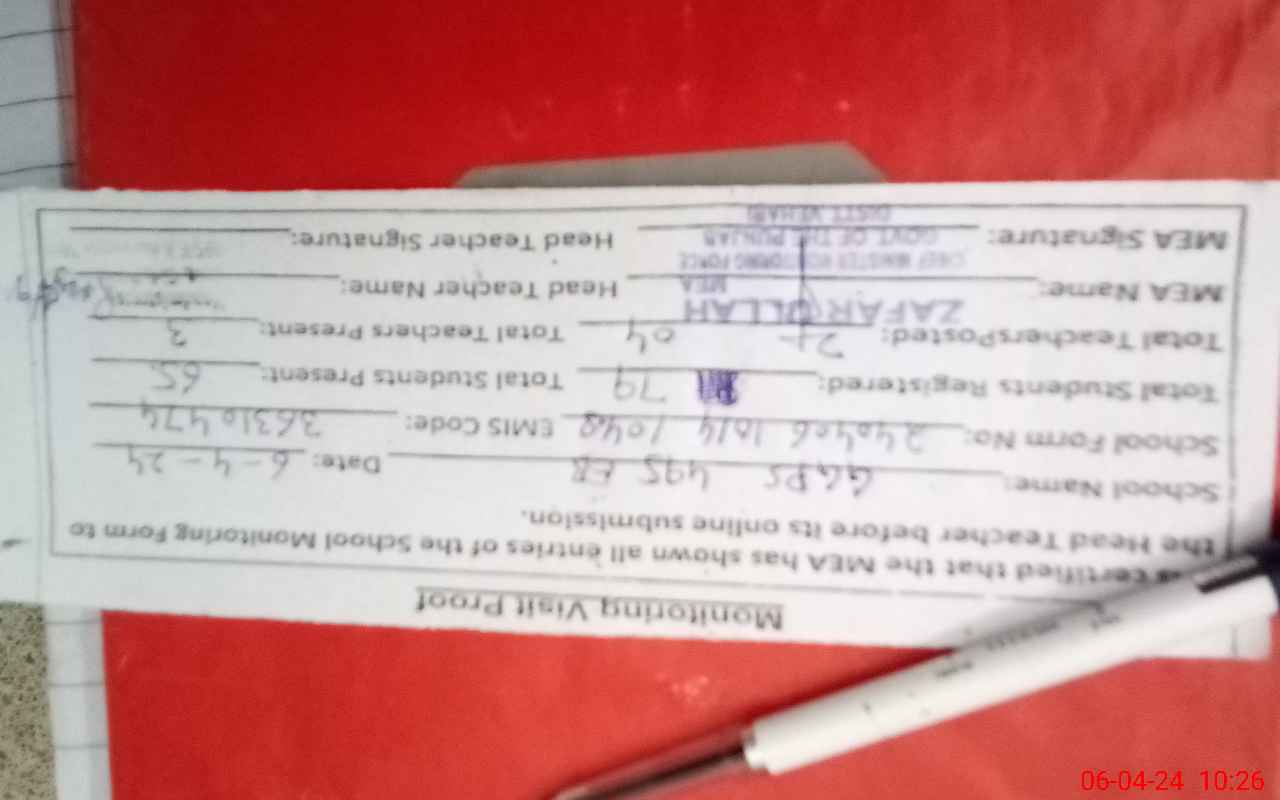 Monitoring Visit Proof
is certified that the MEA has shown all entries of the School Monitoring Form to
the Head Teacher before its online submission.
School Name: GGPS 495 EB Date: 6-4-24
School Form No: EMIS Code: 36310474
Total Students Registered: 79 Total Students Present: 65
Total TeachersPosted: 04 Total Teachers Present: 3
MEA Name: ZAFAR ULLAH Head Teacher Name:
MEA
CHIEF MINISTER MONITORING FORCE
MEA Signature: GOVT OF THE PUNJAB Head Teacher Signature:
DISTT. VEHARI
06-04-24 10:26